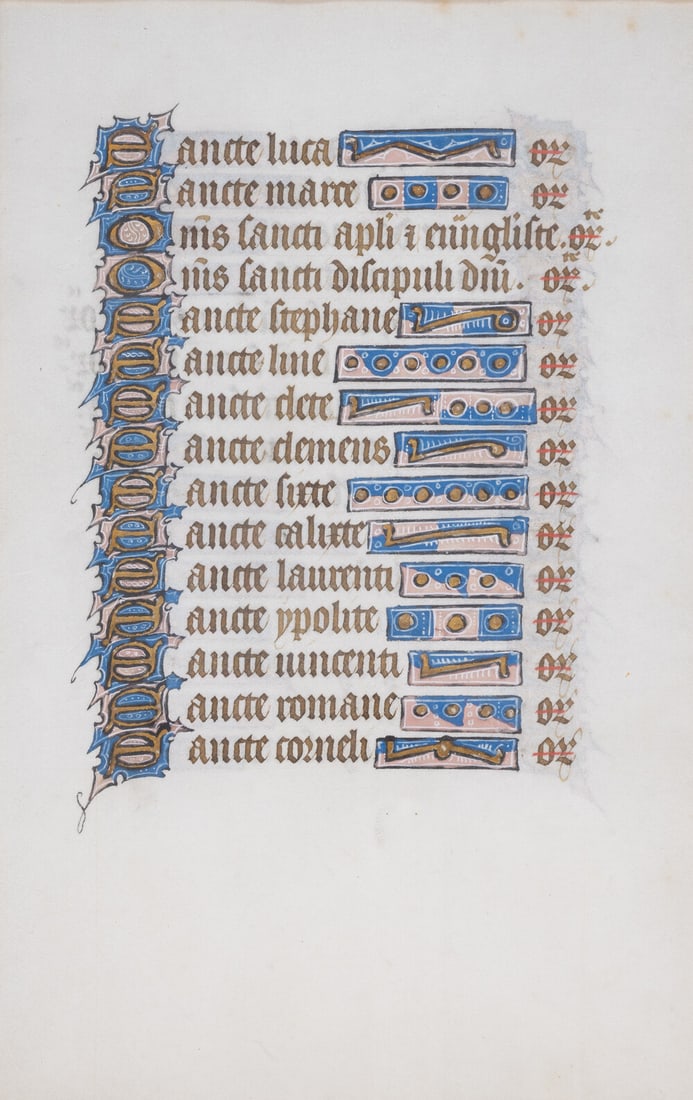 Sancte luca or
Sancte marce or
Om̄s sancti apli ⁊ euūngliste. or̄e.
Om̄s sancti discipuli dn̄i. or̄e.
Sancte stephane or
Sancte line or
Sancte clete or
Sancte clemens or
Sancte sixte or
Sancte calixte or
Sancte laurenti or
Sancte ypolite or
Sancte uincenti or
Sancte romane or
Sancte corneli or